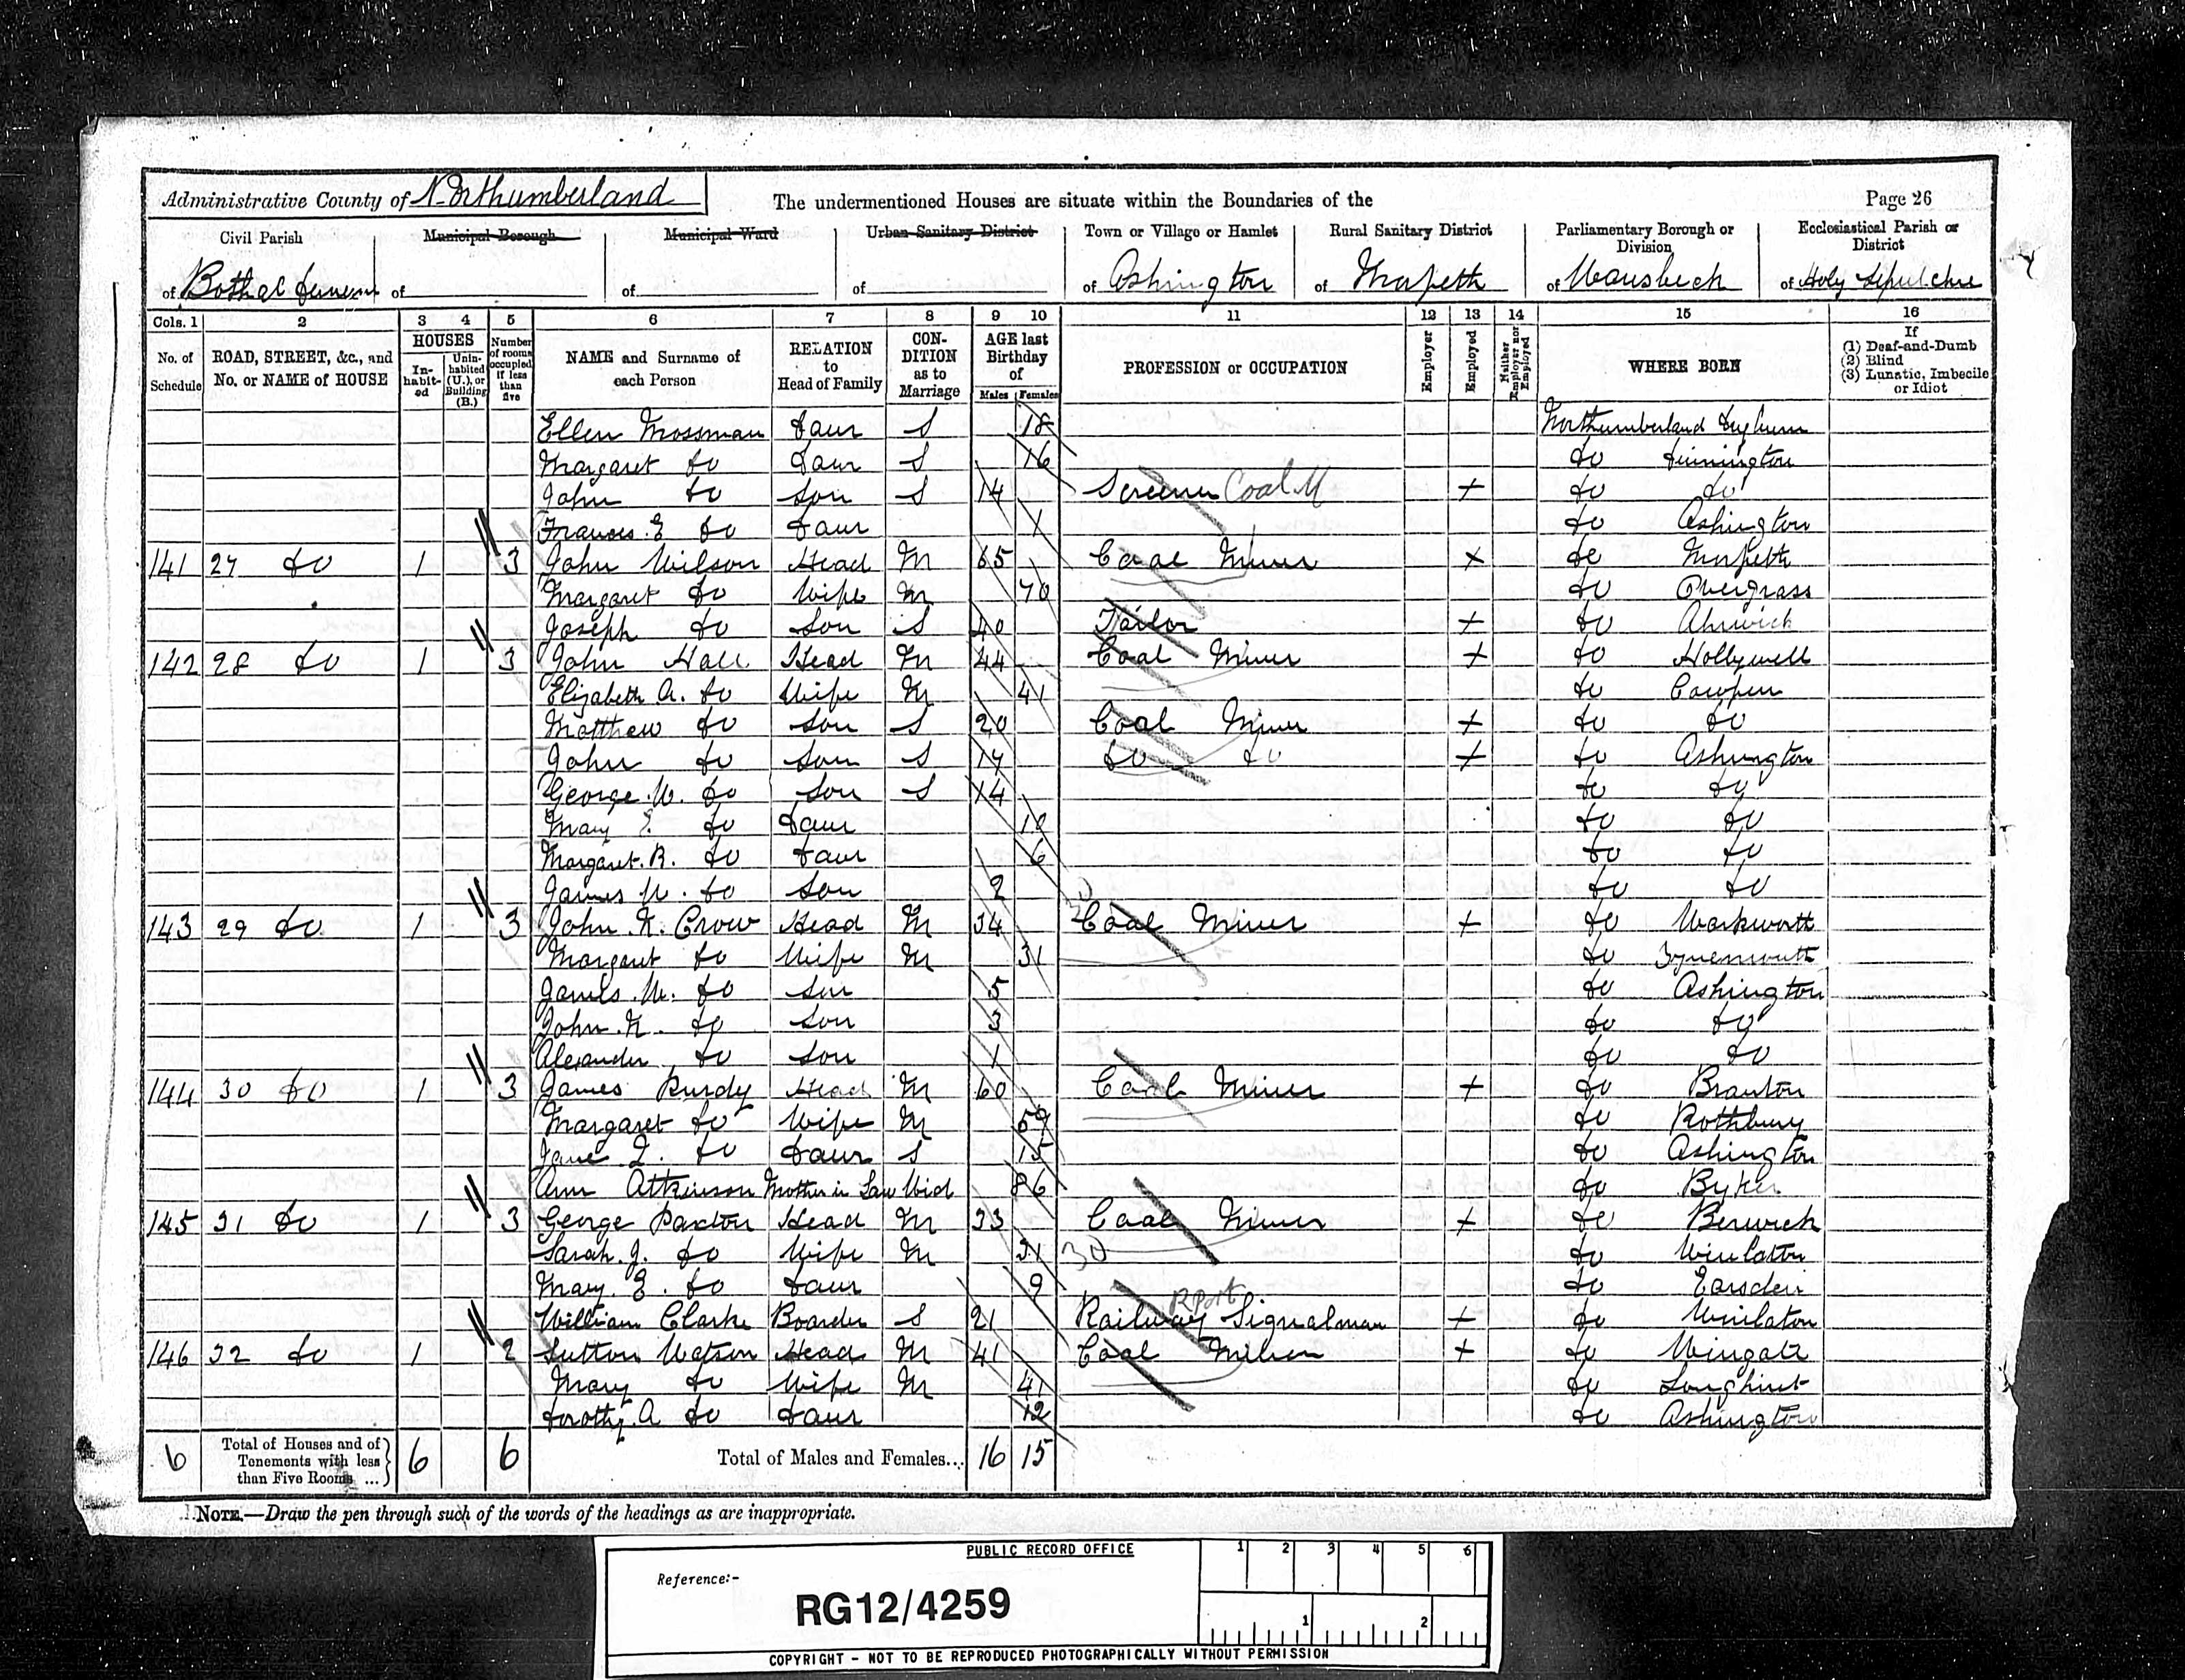 Administrative County of Northumberland The undermentioned Houses are situate within the Boundaries of the Page 26
Civil Parish Municipal Borough Municipal Ward Urban Sanitary District Town or Village or Hamlet Rural Sanitary District Parliamentary Borough or Division Ecclesiastical Parish or District
of Bothal of of of of Ashington of Morpeth of Wansbeck of Holy Sepulchre
Cols. 1 2 3 4 5 6 7 8 9 10 11 12 13 14 15 16
No. of Schedule ROAD, STREET, &c., and No. or NAME of HOUSE HOUSES Inhabited Uninhabited (U.), or Building (B.) Number of rooms occupied if less than five NAME and Surname of each Person RELATION to Head of Family CONDITION as to Marriage AGE last Birthday of Males Females PROFESSION or OCCUPATION Employer Employed Neither Employer nor Employed WHERE BORN If (1) Deaf-and-Dumb (2) Blind (3) Lunatic, Imbecile or Idiot
Ellen Mossman Daur S 18 Northumberland
Margaret Do Daur S 16 Do
John Do Son S 14 Screener Coal M + Do Do
Frances E Do Daur 1 Do Ashington
141 27 Do 1 3 John Wilson Head M 65 Coal Miner x Do Morpeth
Margaret Do Wife M 70 Do Overgrass
Joseph Do Son S 40 Tailor + Do Alnwick
142 28 Do 1 3 John Hall Head M 44 Coal Miner + Do Hollywell
Elizabeth A. Do Wife M 41 Do Cowpen
Matthew Do Son S 20 Coal Miner + Do Do
John Do Son S 17 Do Do + Do Ashington
George W. Do Son S 14 Do Do
Mary E. Do Daur 10 Do Do
Margaret. B. Do Daur 6 Do Do
James W. Do Son 2 Do Do
143 29 Do 1 3 John N. Crow Head M 34 Coal Miner + Do Warkworth
Margaret Do Wife M 31 Do Tynemouth
James. W. Do Son 5 Do Ashington
John. N. Do Son 3 Do Do
Alexander Do Son 1 Do Do
144 30 Do 1 3 James Purdy Head M 60 Coal Miner + Do Branton
Margaret Do Wife M 59 Do Rothbury
Jane Do Daur S 15 Do Ashington
Ann Atkinson Mother in Law Wid 86 Do Byker
145 31 Do 1 3 George Paxton Head M 33 Coal Miner + Do Berwick
Sarah. J. Do Wife M 31 30 Do Winlaton
Mary. E. Do Daur 9 Do Earsden
William Clarke Boarder S 21 Railway Signalman + Do Winlaton
146 32 Do 1 2 Sutton Watson Head M 41 Coal + Do Wingate
Mary Do Wife M 41 Do Longhirst
Dorothy. A Do Daur 12 Do Ashington
6 Total of Houses and of Tenements with less than Five Rooms ... 6 6 Total of Males and Females... 16 15
NOTE.—Draw the pen through such of the words of the headings as are inappropriate.
PUBLIC RECORD OFFICE 1 2 3 4 5 6
Reference:-
RG12/4259
1 2
COPYRIGHT - NOT TO BE REPRODUCED PHOTOGRAPHICALLY WITHOUT PERMISSION